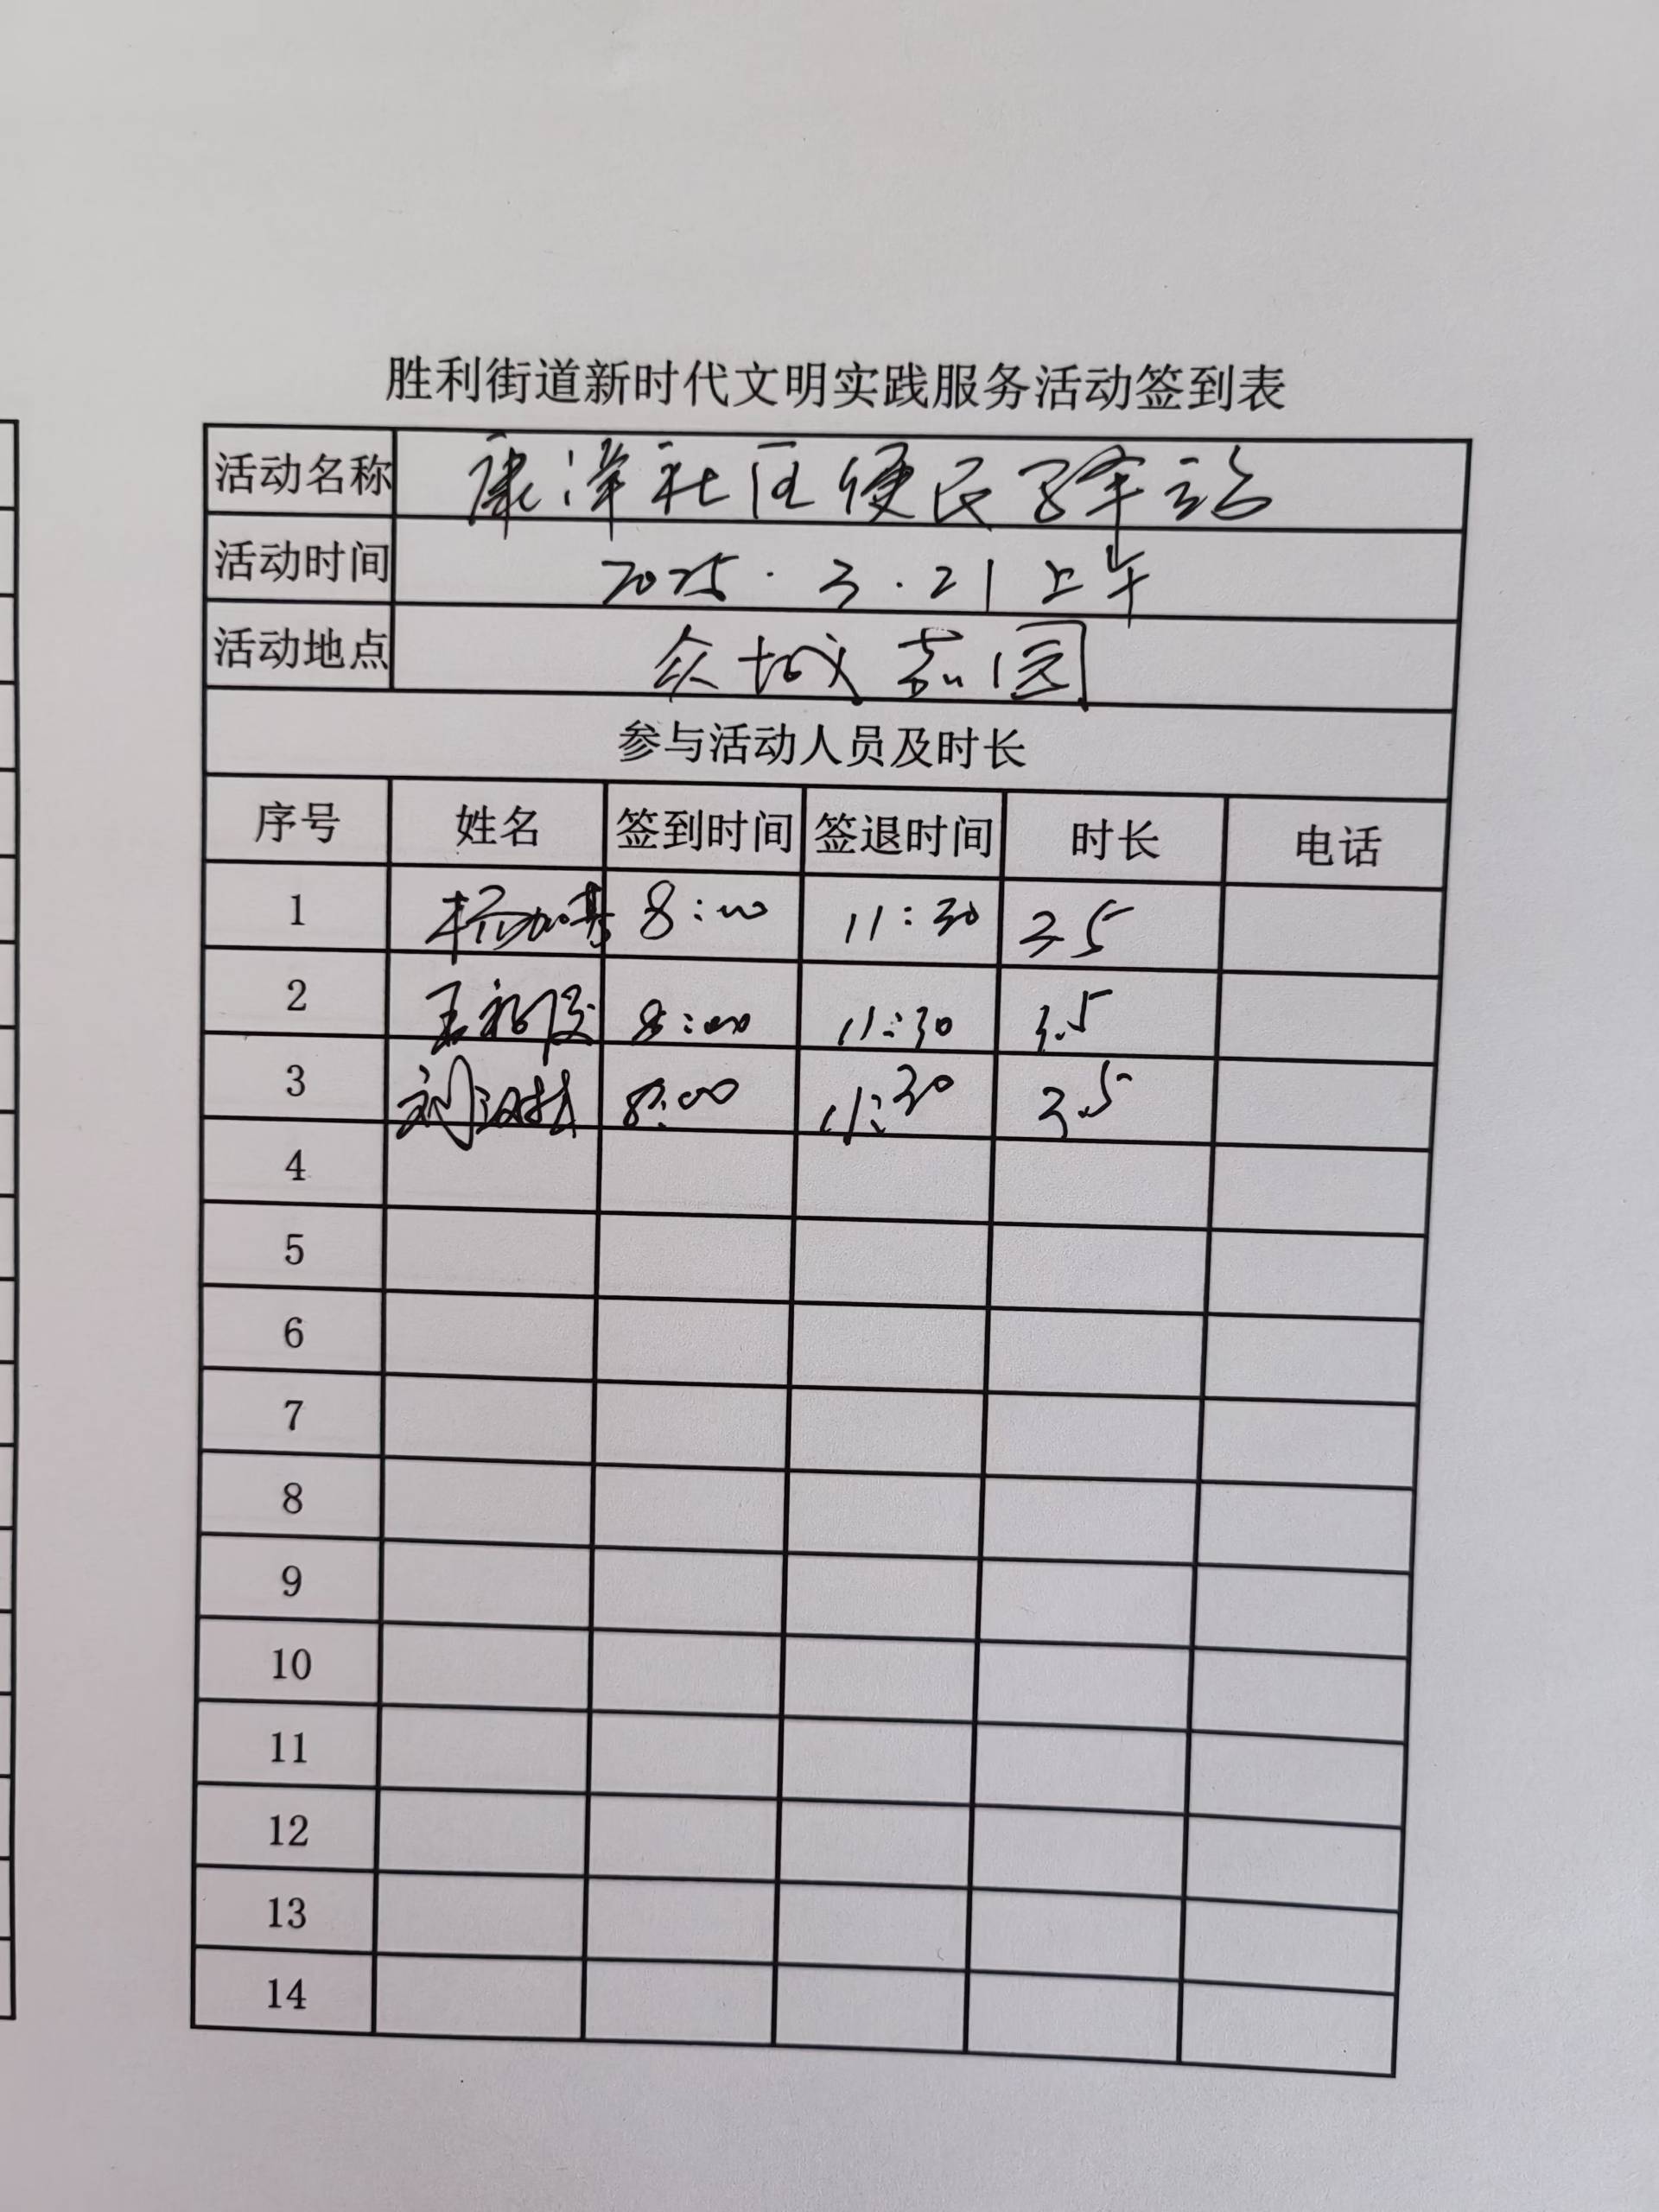 胜利街道新时代文明实践服务活动签到表
活动名称 康洋社区便民驿站
活动时间 2025.3.21上午
活动地点 众城嘉园
参与活动人员及时长
序号 姓名 签到时间 签退时间 时长 电话
1 杨 8:00 11:30 3.5
2 王 8:00 11:30 3.5
3 刘汉林 8:00 11:30 3.5
4
5
6
7
8
9
10
11
12
13
14